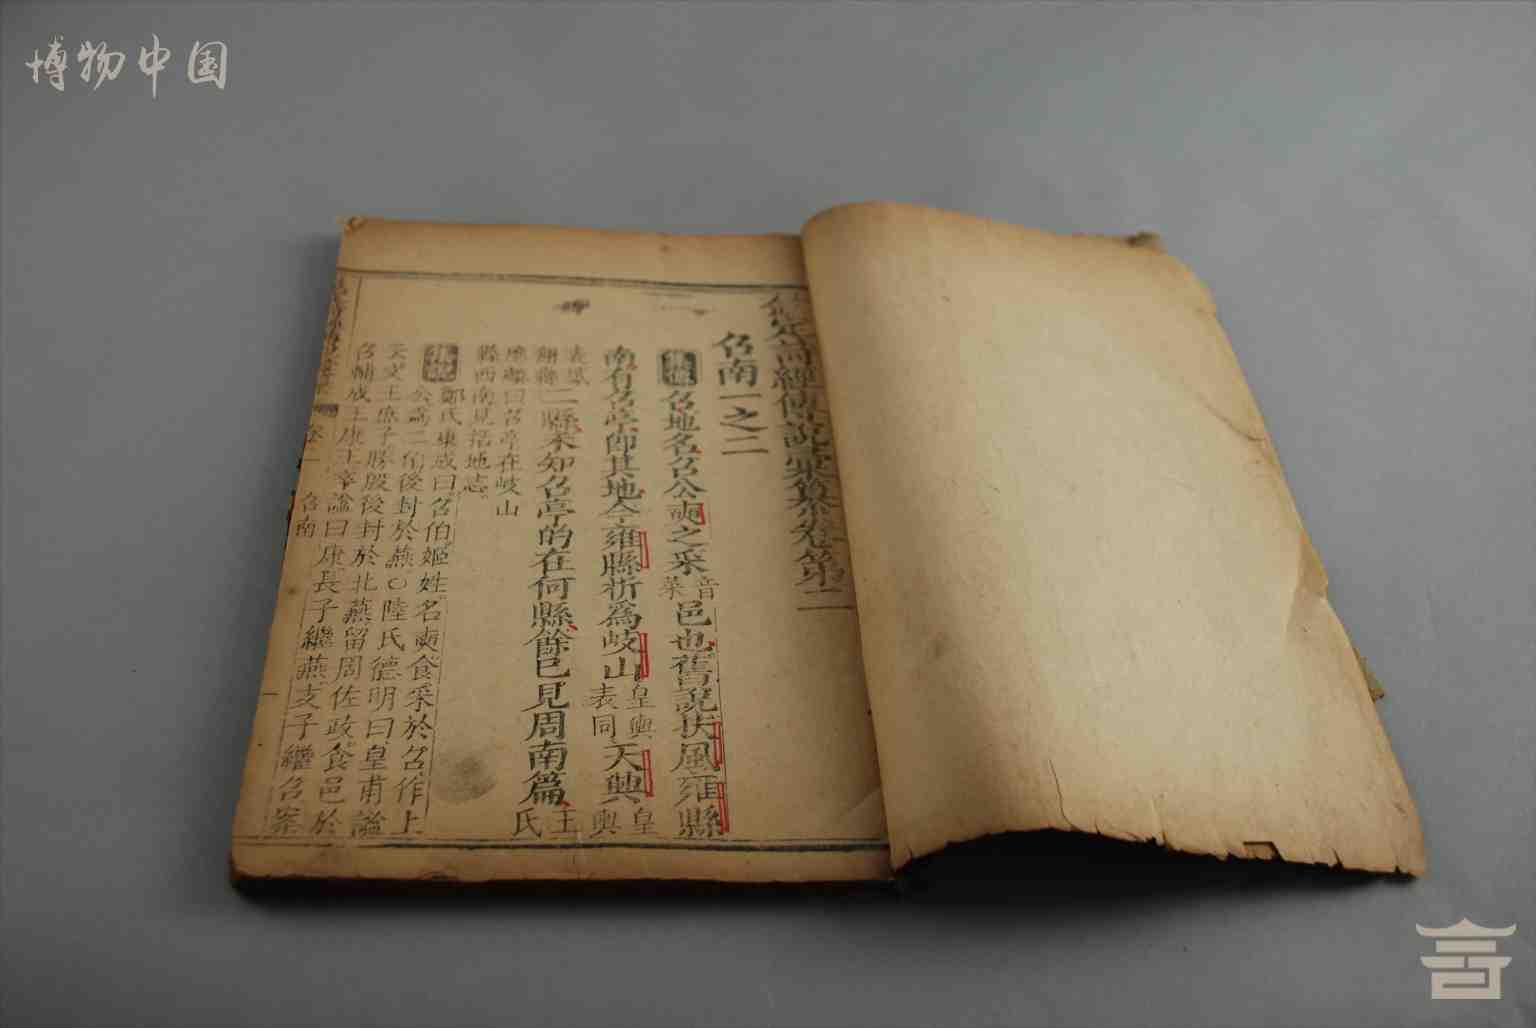 博物中国
詩經傳說彙纂卷第二
召南一之二
集傳 召地名召公奭之采音菜邑也舊說扶風雍縣
南有召亭卽其地今雍縣析爲岐山皇輿表同天興皇輿
二縣未知召亭的在何縣餘已見周南篇王氏
應麟曰召亭在岐山
縣西南見括地志
集說 鄭氏康成曰召伯姬姓名奭食采於召作上
公爲二伯後封於燕○陸氏德明曰皇甫謐
云文王庶子勝殷後封於北燕留周佐政食邑於
召輔成王康王卒謚曰康長子繼燕支子繼召案
卷二 召南